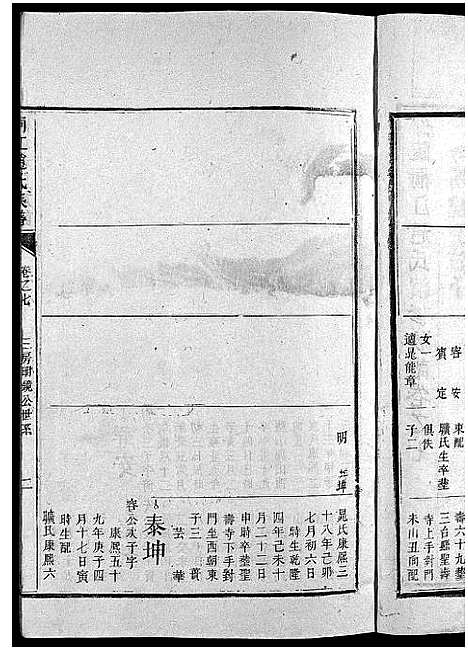 容安
賓定
女一
適晁能章
東配
驥氏生卒塟
俱佚
子二
壽六十九塟
三台縣聖壽
寺上手對門
未山丑向配
晁氏康熙三
十八年己卯
七月初六日
時生乾隆
四年己未十
月二十二日
申時卒塟聖
壽寺下手對
門坐西朝東
子三
芸華
泰坤
容公次子字
康熙五十
九年庚子四
月十七日寅
時生配
驥氏康熙六
明
卷之七
三房明鏡公世系
二